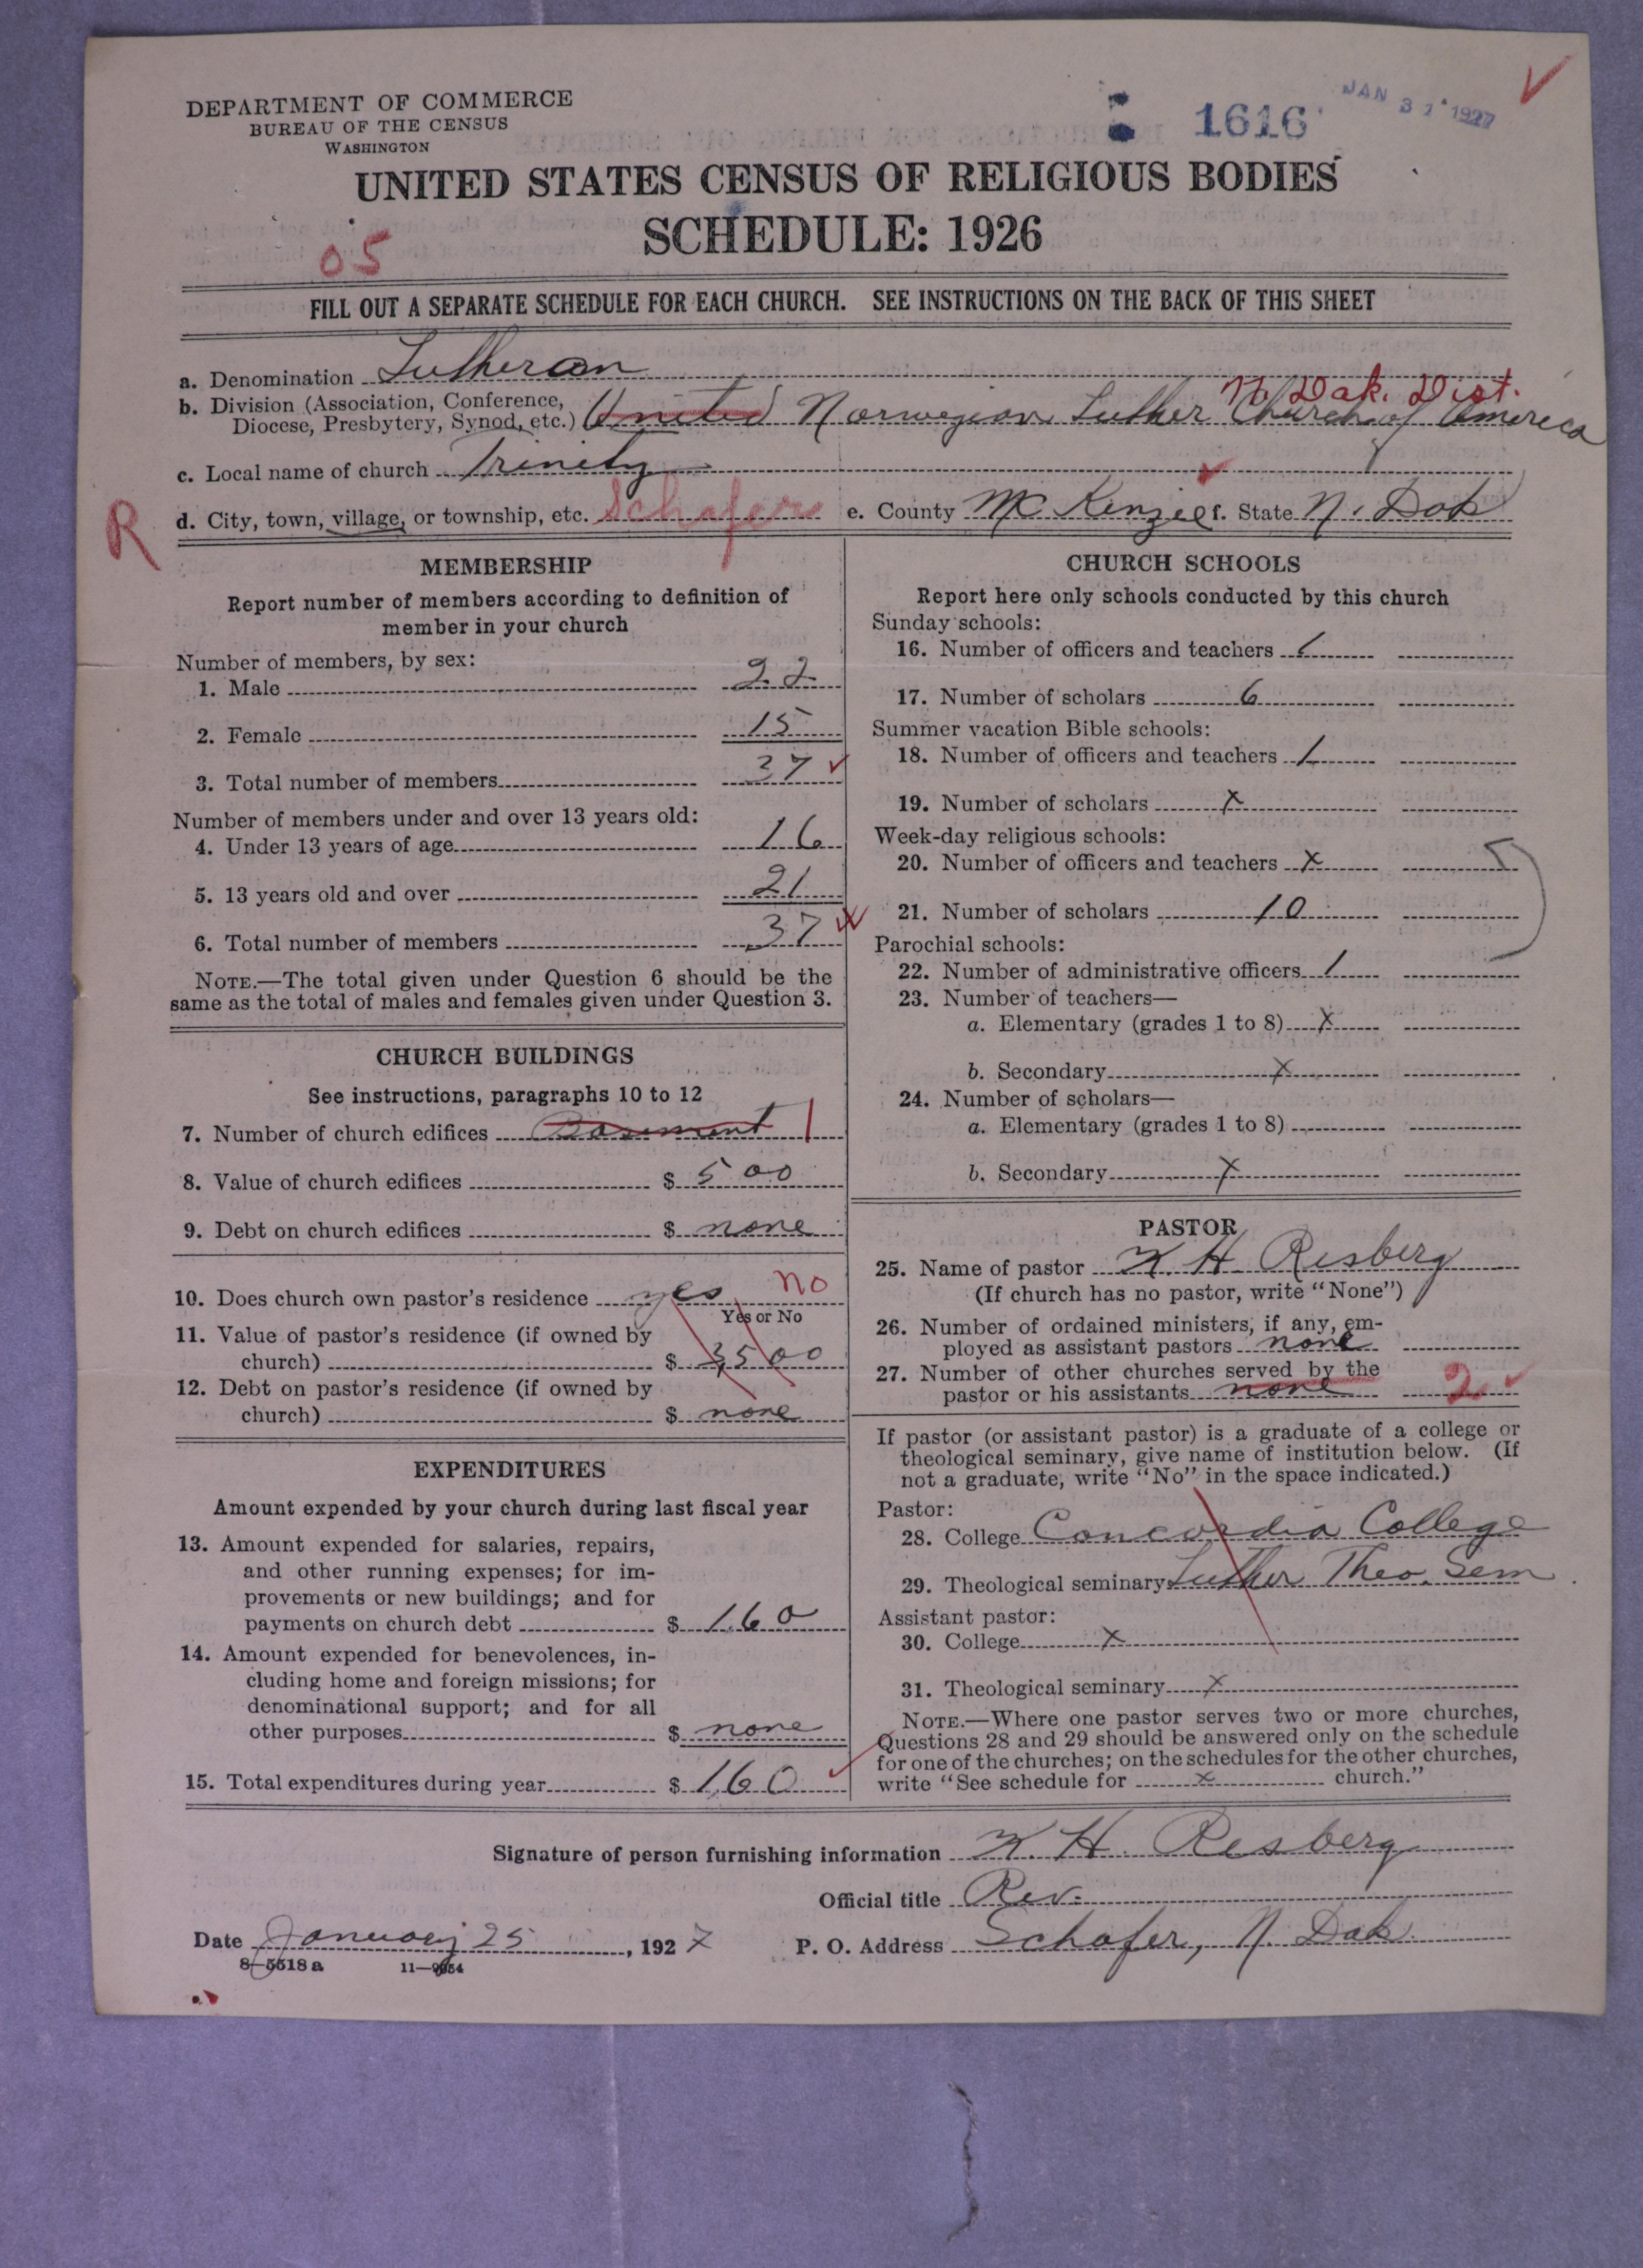 DEPARTMENT OF COMMERCE
BUREAU OF THE CENSUS
WASHINGTON
1616
JAN 31 1927
UNITED STATES CENSUS OF RELIGIOUS BODIES
SCHEDULE: 1926
05
FILL OUT A SEPARATE SCHEDULE FOR EACH CHURCH. SEE INSTRUCTIONS ON THE BACK OF THIS SHEET
a. Denomination Lutheran
No. Dak. Dist.
b. Division (Association, Conference,
Diocese, Presbytery, Synod, etc.) United Norwegian Luther Church of America
c. Local name of church Trinity
R
d. City, town, village, or township, etc. Schafer e. County McKenzie f. State N. Dak
MEMBERSHIP
Report number of members according to definition of
member in your church
Number of members, by sex:
1. Male 22
2. Female 15
3. Total number of members 37
Number of members under and over 13 years old:
4. Under 13 years of age 16
5. 13 years old and over 21
6. Total number of members 37
NOTE.—The total given under Question 6 should be the
same as the total of males and females given under Question 3.
CHURCH BUILDINGS
See instructions, paragraphs 10 to 12
7. Number of church edifices Basement 1
8. Value of church edifices $ 500
9. Debt on church edifices $ none
10. Does church own pastor's residence yes No
Yes or No
11. Value of pastor's residence (if owned by
church) $ 3,500
12. Debt on pastor's residence (if owned by
church) $ none
EXPENDITURES
Amount expended by your church during last fiscal year
13. Amount expended for salaries, repairs,
and other running expenses; for im-
provements or new buildings; and for
payments on church debt $ 160
14. Amount expended for benevolences, in-
cluding home and foreign missions; for
denominational support; and for all
other purposes $ none
15. Total expenditures during year $ 160
CHURCH SCHOOLS
Report here only schools conducted by this church
Sunday schools:
16. Number of officers and teachers 1
17. Number of scholars 6
Summer vacation Bible schools:
18. Number of officers and teachers 1
19. Number of scholars x
Week-day religious schools:
20. Number of officers and teachers x
21. Number of scholars 10
Parochial schools:
22. Number of administrative officers 1
23. Number of teachers—
a. Elementary (grades 1 to 8) x
b. Secondary x
24. Number of scholars—
a. Elementary (grades 1 to 8)
b. Secondary x
PASTOR
25. Name of pastor H. Risberg
(If church has no pastor, write "None")
26. Number of ordained ministers, if any, em-
ployed as assistant pastors none
27. Number of other churches served by the
pastor or his assistants none 2
If pastor (or assistant pastor) is a graduate of a college or
theological seminary, give name of institution below. (If
not a graduate, write "No" in the space indicated.)
Pastor:
28. College Concordia College
29. Theological seminary Luther Theo. Sem
Assistant pastor:
30. College x
31. Theological seminary x
NOTE.—Where one pastor serves two or more churches,
Questions 28 and 29 should be answered only on the schedule
for one of the churches; on the schedules for the other churches,
write "See schedule for x church."
Signature of person furnishing information H. Risberg
Official title Rev.
Date January 25, 1927 P. O. Address Schafer, N. Dak.
8—5518 a 11—9054